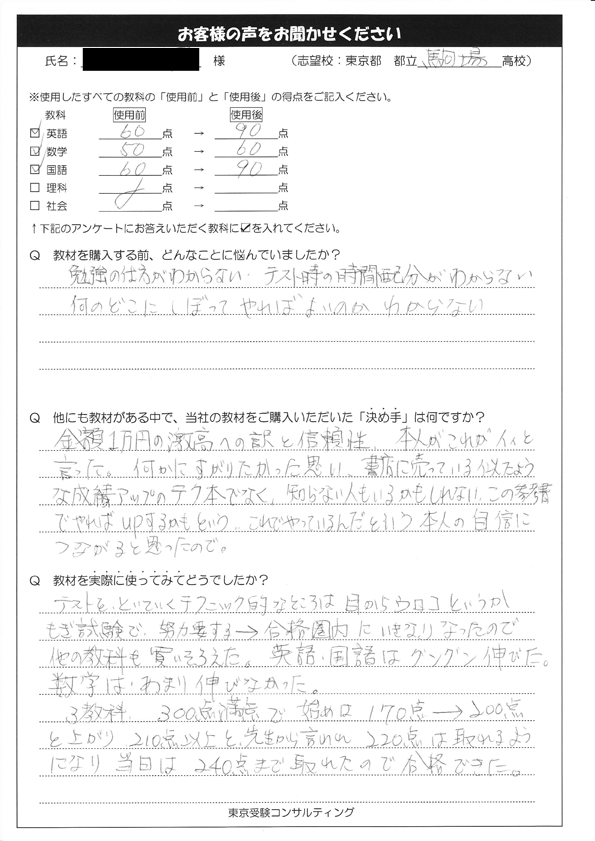 お客様の声をお聞かせください
氏名： 様 （志望校：東京都 都立 駒場 高校）
※使用したすべての教科の「使用前」と「使用後」の得点をご記入ください。
教科 使用前 使用後
☑ 英語 60 点 → 90 点
☑ 数学 50 点 → 60 点
☑ 国語 60 点 → 90 点
□ 理科 点 → 点
□ 社会 点 → 点
↑下記のアンケートにお答えいただく教科に☑を入れてください。
Q 教材を購入する前、どんなことに悩んでいましたか？
勉強の仕方がわからない．テスト時の時間配分がわからない
何のどこにしぼってやればよいのかわからない
Q 他にも教材がある中で、当社の教材をご購入いただいた「決め手」は何ですか？
金額1万円の激高への訳と信頼性、本人がこれがイィと
言った。何かにすがりたかった思い、書店に売っている似たよう
な成績アップのテク本でなく、知らない人もいるかもしれない、この参考書
でやればupするかもという、これでやっているんだという本人の自信に
つながると思ったので。
Q 教材を実際に使ってみてどうでしたか？
テストを、といていくテクニック的なところは目からウロコというか
もぎ試験で、努力要する→合格圏内にいきなりなったので
他の教科も買いそろえた。英語・国語はグングン伸びた。
数学は、あまり伸びなかった。
3教科、300点満点で始めは170点→200点
と上がり 210点以上と、先生から言われ 220点は取れるよう
になり 当日は 240点まで取れたので合格できた。
東京受験コンサルティング